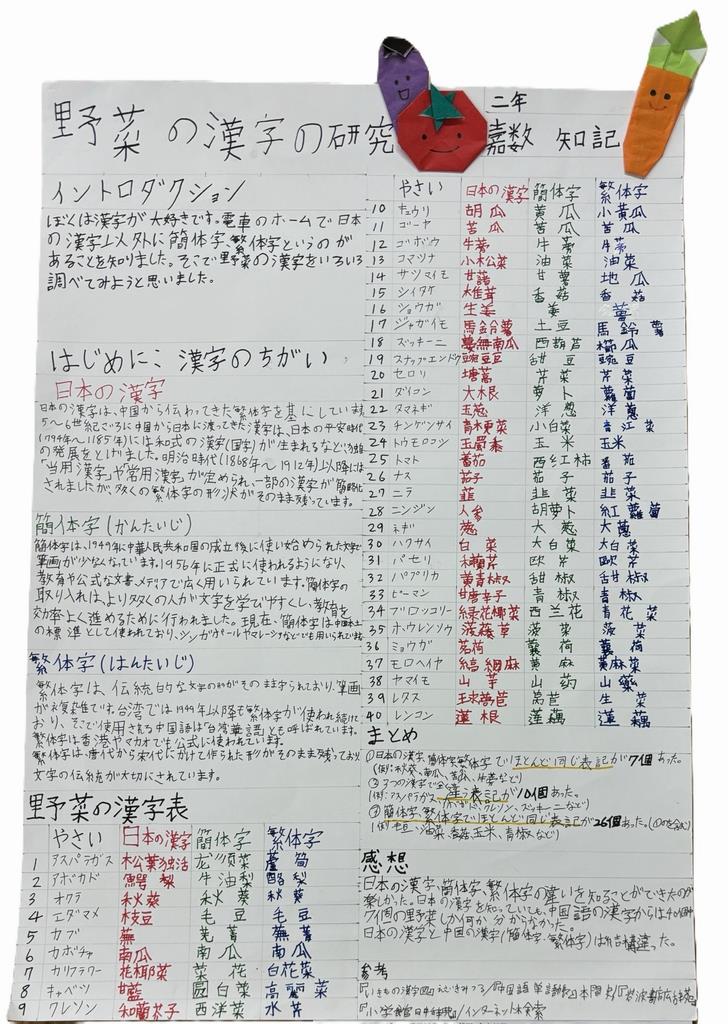 野菜の漢字の研究
二年
嘉数 知記
イントロダクション
ぼくは漢字が大好きです。電車のホームで日本
の漢字以外に簡体字、繁体字というのが
あることを知りました。そこで野菜の漢字をいろいろ
調べてみようと思いました。
はじめに：漢字のちがい
日本の漢字
日本の漢字は、中国から伝わってきた繁体字を基にしています
5〜6世紀ごろに中国から日本に渡ってきた漢字は、日本の平安時代
(794年〜1185年)には和式の漢字(国字)が生まれるなど独自
の発展をとげました。明治時代(1868年〜1912年)以降には
「当用漢字」や「常用漢字」が定められ、一部の漢字が簡略化
されましたが、多くの繁体字の形状がそのまま残っています。
簡体字(かんたいじ)
簡体字は、1949年に中華人民共和国の成立後に使い始められた文字で
筆画が少なくなっています。1956年に正式に使われるようになり、
教育や公式な文書、メディアで広く用いられています。簡体字の
取り入れは、より多くの人が文字を学びやすくし、教育を
効率よく進めるために行われました。現在、簡体字は中国本土
の標準として使われており、シンガポールやマレーシアなどでも用いられています
繁体字(はんたいじ)
繁体字は、伝統的な文字の形がそのまま守られており、筆画
が複雑です。台湾では1949年以降で繁体字が使われ続けて
おり、そこで使用される中国語は「台湾華語」とも呼ばれています。
繁体字は香港やマカオでも公式に使われています。
繁体字は唐代から宋代にかけて作られた形がそのまま残っており
文字の伝統が大切にされています。
野菜の漢字表
やさい 日本の漢字 簡体字 繁体字
1 アスパラガス 松葉独活 龙须菜 蘆筍
2 アボカド 鰐梨 牛油梨 酪梨
3 オクラ 秋葵 秋葵 秋葵
4 エダマメ 枝豆 毛豆 毛豆
5 カブ 蕪 芜菁 蕪菁
6 カボチャ 南瓜 南瓜 南瓜
7 カリフラワー 花椰菜 菜花 白花菜
8 キャベツ 甘藍 圆白菜 高麗菜
9 クレソン 和蘭芥子 西洋菜 水芥
やさい 日本の漢字 簡体字 繁体字
10 キュウリ 胡瓜 黄瓜 小黄瓜
11 ゴーヤ 苦瓜 苦瓜 苦瓜
12 ゴボウ 牛蒡 牛蒡 牛蒡
13 コマツナ 小松菜 油菜 油菜
14 サツマイモ 甘藷 甘薯 地瓜
15 シイタケ 椎茸 香菇 香菇
16 ショウガ 生姜 姜 薑
17 ジャガイモ 馬鈴薯 土豆 馬鈴薯
18 ズッキーニ 蔓無南瓜 西葫芦 櫛瓜
19 スナップエンドウ 豌豆豆 甜豆 豌豆
20 セロリ 塘蒿 芹菜 芹菜
21 ダイコン 大根 萝卜 蘿蔔
22 タマネギ 玉葱 洋葱 洋蔥
23 チンゲンサイ 青梗菜 小白菜 青江菜
24 トウモロコシ 玉蜀黍 玉米 玉米
25 トマト 蕃茄 西红柿 番茄
26 ナス 茄子 茄子 茄子
27 ニラ 韮 韭菜 韭菜
28 ニンジン 人参 胡萝卜 紅蘿蔔
29 ネギ 葱 大葱 大蔥
30 ハクサイ 白菜 大白菜 大白菜
31 パセリ 和蘭芹 欧芹 歐芹
32 パプリカ 黄青椒 甜椒 甜椒
33 ピーマン 甘唐辛子 青椒 青椒
34 ブロッコリー 緑花椰菜 西兰花 青花菜
35 ホウレンソウ 菠薐草 菠菜 菠菜
36 ミョウガ 茗荷 蘘荷 蘘荷
37 モロヘイヤ 縞綱麻 黄麻 黄麻菜
38 ヤマイモ 山芋 山药 山藥
39 レタス 球萵苣 莴苣 生菜
40 レンコン 蓮根 莲藕 蓮藕
まとめ
①日本の漢字、簡体字、繁体字でほとんど同じ表記が7個あった。
(例：秋葵、南瓜、苦瓜、牛蒡など)
②3つの漢字で全く違う表記が10個あった。
(例：アスパラガス、アボカド、クレソン、ズッキーニなど)
③簡体字、繁体字でほとんど同じ表記が26個あった。(①のを含む)
(例：毛豆、油菜、香菇、玉米、青椒など)
感想
日本の漢字、簡体字、繁体字の違いを知ることができたのが
楽しかった。日本の漢字を知っていても、中国語の漢字からは40個中
7個の野菜しか何か分からなかった。
日本の漢字と中国の漢字(簡体字、繁体字)は結構違った。
参考